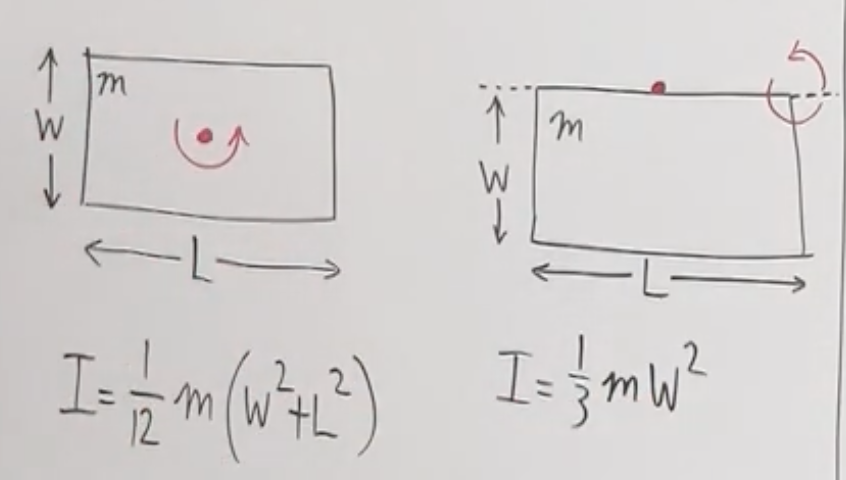 m
W
L
I = 1/12 m (W² + L²)
m
W
L
I = 1/3 m W²